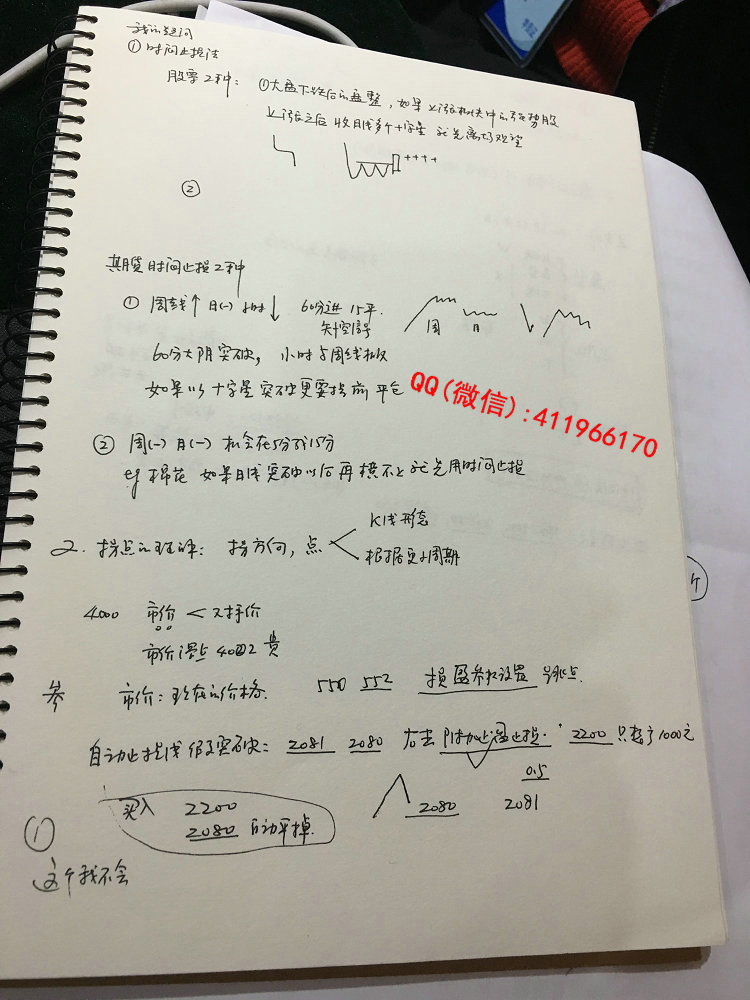 我的疑问
① 时间止损法
股票2种: ①大盘下跌后的盘整,如果上涨板块中的强势股
上涨之后 收日线多个十字星 就先离场观望
++++
②
期货时间止损2种
① 周线↑ 日(一) 小时↓ 60分进 15平.
周 日
60分大阴突破, 小时与周线
如果以十字星突破更要提前平仓
QQ(微信):411966170
② 周(一) 日(一) 机会在5分到15分
eg 棉花 如果日线突破以后再横不上就先用时间止损
2. 拐点的理解: 拐方向, 点
K线形态
根据更小周期
4000 市价 < 对手价
市价 4002 贵
市价: 现在的价格. 550 552 损盈参数设置
自动止损线 假突破: 2081 2080 右击 附加止盈止损. 2200 只 1000元
0.5
买入 2200
2080 自动平掉.
2080 2081
①
这个我不会